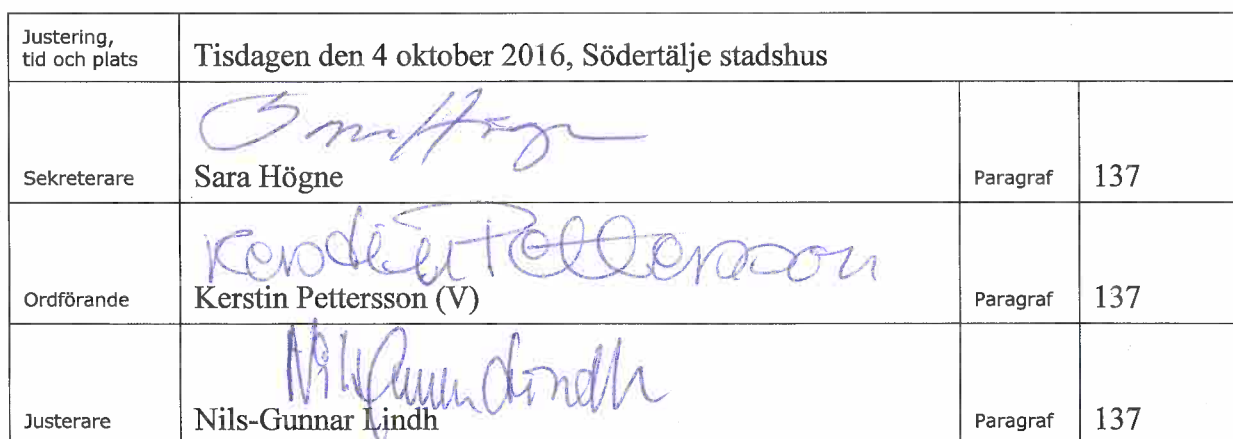 Justering,
tid och plats
Tisdagen den 4 oktober 2016, Södertälje stadshus
Sara Högne
Sekreterare
Sara Högne
Paragraf
137
Kerstin Pettersson
Ordförande
Kerstin Pettersson (V)
Paragraf
137
Nils Gunnar Lindh
Justerare
Nils-Gunnar Lindh
Paragraf
137